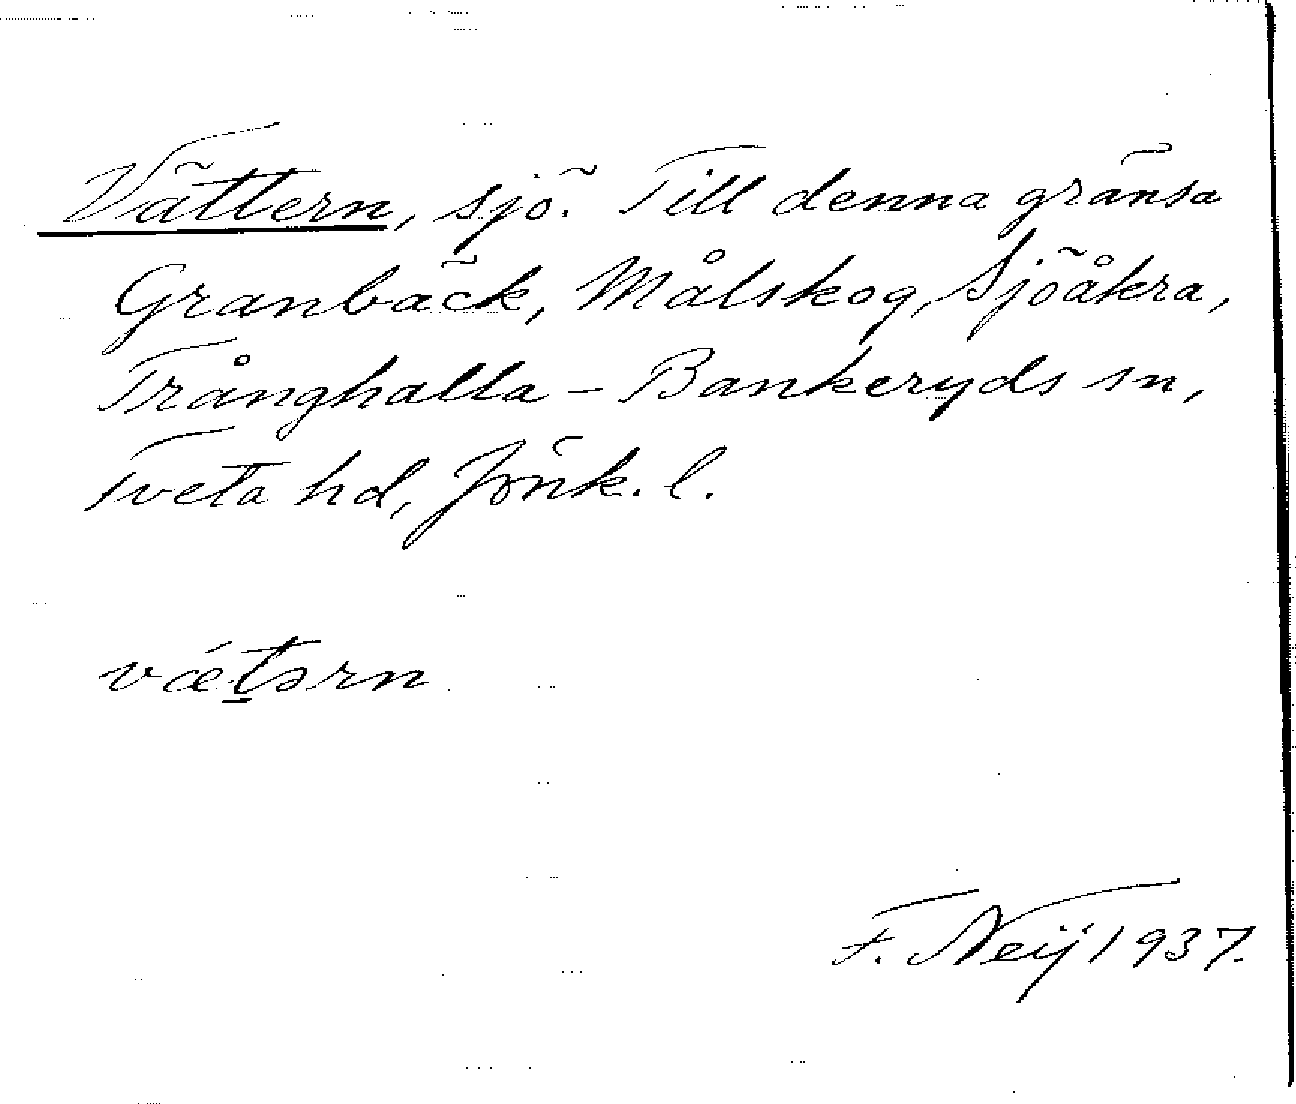 Vättern, sjö. Till denna gränsa
Granbäck, Målskog, Sjöåkra,
Trånghalla - Bankeryds sn,
Tveta hd, Jönk. l.
vǽt̠ərn
F. Neij 1937.